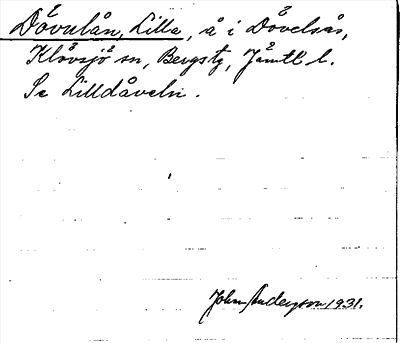 Dövulån, Lilla, å i Dövelsås,
Klövsjö sn, Bergstg, Jämtl. l.
Se Lilldåveln.
John Anderson 1931.